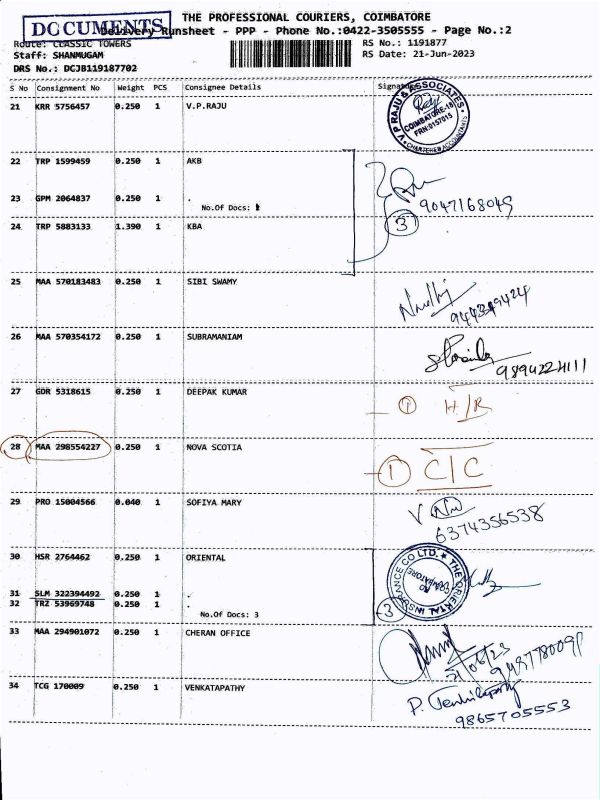 DOCUMENTS
THE PROFESSIONAL COURIERS, COIMBATORE
Delivery Runsheet - PPP - Phone No.:0422-3505555 - Page No.:2
Route: CLASSIC TOWERS
RS No.: 1191877
Staff: SHANMUGAM
RS Date: 21-Jun-2023
DRS No.: DCJB119187702
S No Consignment No Weight PCS Consignee Details Signature
21 KRR 5756457 0.250 1 V.P.RAJU
V.P RAJU & ASSOCIATES
COIMBATORE-18
FRN:015701S
CHARTERED ACCOUNTANTS
22 TRP 1599459 0.250 1 AKB
23 GPM 2064837 0.250 1 .
No.Of Docs:
9047168049
3
24 TRP 5883133 1.390 1 KBA
25 MAA 570183483 0.250 1 SIBI SWAMY
26 MAA 570354172 0.250 1 SUBRAMANIAM
9894224111
27 GDR 5318615 0.250 1 DEEPAK KUMAR
1 H/R
28 MAA 298554227 0.250 1 NOVA SCOTIA
1 C/C
29 PRO 15004566 0.040 1 SOFIYA MARY
6374356538
30 HSR 2764462 0.250 1 ORIENTAL
THE ORIENTAL INSURANCE CO LTD.
COIMBATORE
31 SLM 322394492 0.250 1 .
32 TRZ 53969748 0.250 1 .
No.Of Docs: 3
3
33 MAA 294901072 0.250 1 CHERAN OFFICE
34 TCG 170009 0.250 1 VENKATAPATHY
9865705553